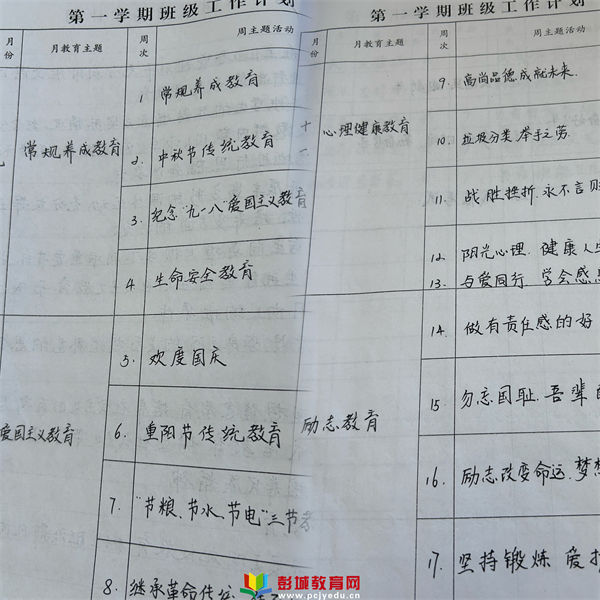 第一学期班级工作计划
月份 月教育主题 周次 周主题活动
1 常规养成教育
常规养成教育
2. 中秋节传统教育
3. 纪念"九一八"爱国主义教育
4 生命安全教育
5. 欢度国庆
爱国主义教育
6. 重阳节传统教育
7. "节粮、节水、节电"三节
8. 继承革命传
第一学期班级工作计划
月份 月教育主题 周次 周主题活动
9. 高尚品德,成就未来.
十一 心理健康教育
10. 垃圾分类,举手之劳.
11. 战胜挫折,永不言
12. 阳光心理,健康人
13. 与爱同行,学会感
14. 做有责任感的好
15. 勿忘国耻,吾辈
励志教育
16. 励志改变命运,梦
17. 坚持锻炼 爱
彭城教育网
www.pcjyedu.cn